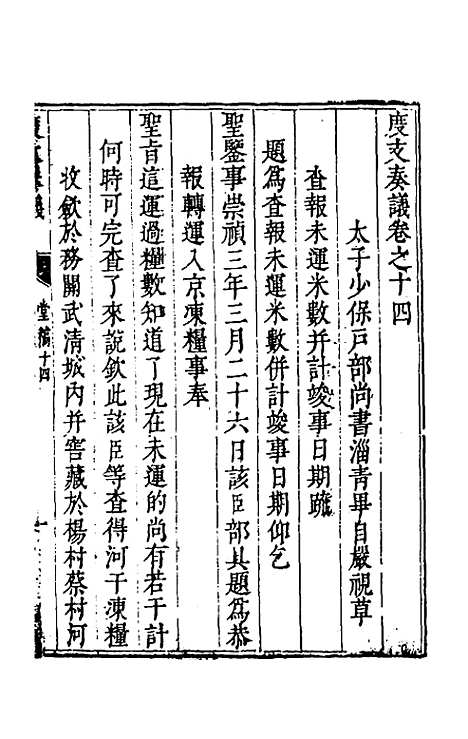 度支奏議卷之十四
太子少保戶部尚書淄青畢自嚴視草
查報未運米數并計竣事日期疏
題爲查報未運米數併計竣事日期仰乞
聖鑒事崇禎三年三月二十六日該臣部具題爲恭
報轉運入京凍糧事奉
聖旨這運過糧數知道了現在未運的尚有若干計
何時可完查了來說欽此該臣等查得河干凍糧
收斂於務關武清城內并窖藏於楊村蔡村河
堂稿十四